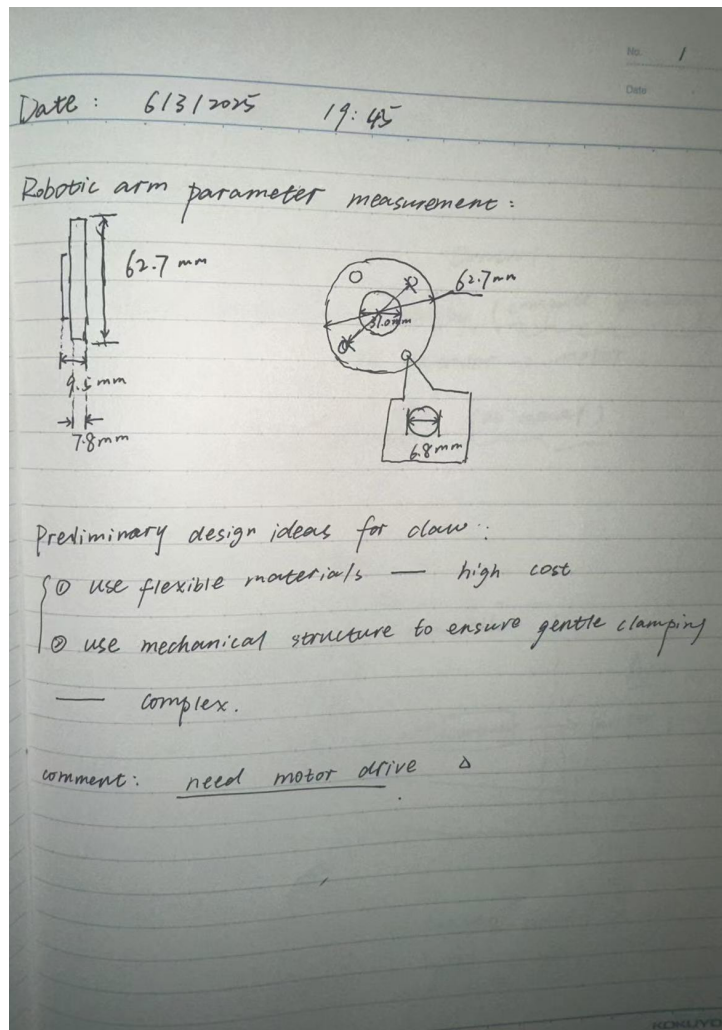 No. 1
Date
Date : 6/3/2025 19:45
Robotic arm parameter measurement :
62.7 mm
9.5 mm
7.8 mm
62.7 mm
31.0 mm
6.8 mm
Preliminary design ideas for claw :
① use flexible materials — high cost
② use mechanical structure to ensure gentle clamping
— complex.
comment : need motor drive △
KOKUYO